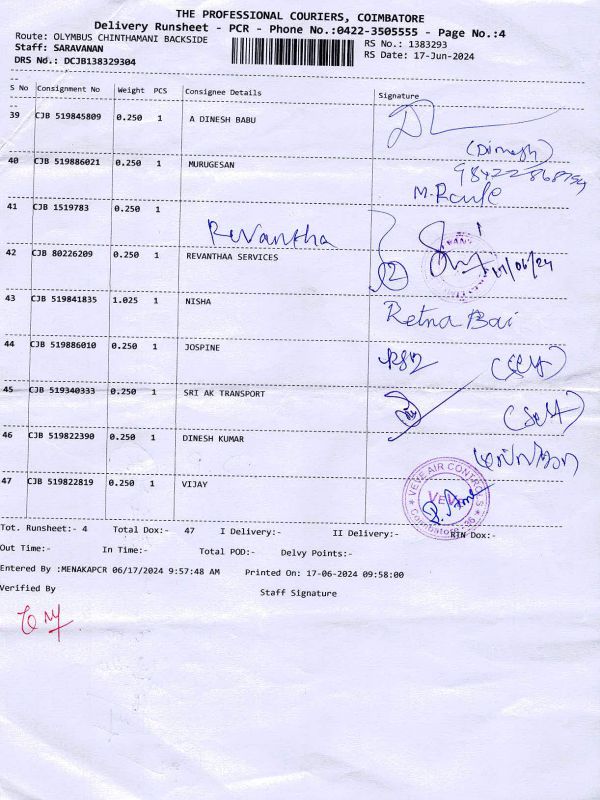 THE PROFESSIONAL COURIERS, COIMBATORE
Delivery Runsheet - PCR - Phone No.:0422-3505555 - Page No.:4
Route: OLYMBUS CHINTHAMANI BACKSIDE RS No.: 1383293
Staff: SARAVANAN RS Date: 17-Jun-2024
DRS No.: DCJB138329304
S No Consignment No Weight PCS Consignee Details Signature
39 CJB 519845809 0.250 1 A DINESH BABU
(Dinesh)
40 CJB 519886021 0.250 1 MURUGESAN
41 CJB 1519783 0.250 1
Revantha
42 CJB 80226209 0.250 1 REVANTHAA SERVICES
2 17/06/24
43 CJB 519841835 1.025 1 NISHA
Retna Bai
44 CJB 519886010 0.250 1 JOSPINE
(Self)
45 CJB 519340333 0.250 1 SRI AK TRANSPORT
(Self)
46 CJB 519822390 0.250 1 DINESH KUMAR
47 CJB 519822819 0.250 1 VIJAY
VEVE AIR CONTROLS
Coimbatore
Tot. Runsheet:- 4 Total Dox:- 47 I Delivery:- II Delivery:- RTN Dox:-
Out Time:- In Time:- Total POD:- Delvy Points:-
Entered By :MENAKAPCR 06/17/2024 9:57:48 AM Printed On: 17-06-2024 09:58:00
Verified By Staff Signature